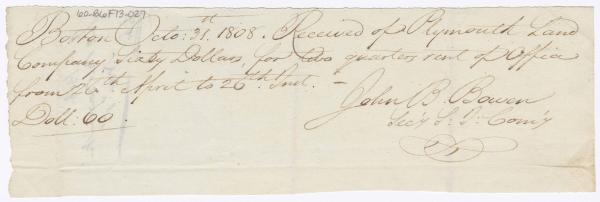 60-B6F13-027
Boston Octo: 31.st 1808. Received of Plymouth Land
Company Sixty Dollars, for two quarters rent of Office
from 26th April to 26th Inst. –
John B. Bowen
Doll: 60.
Sec'y